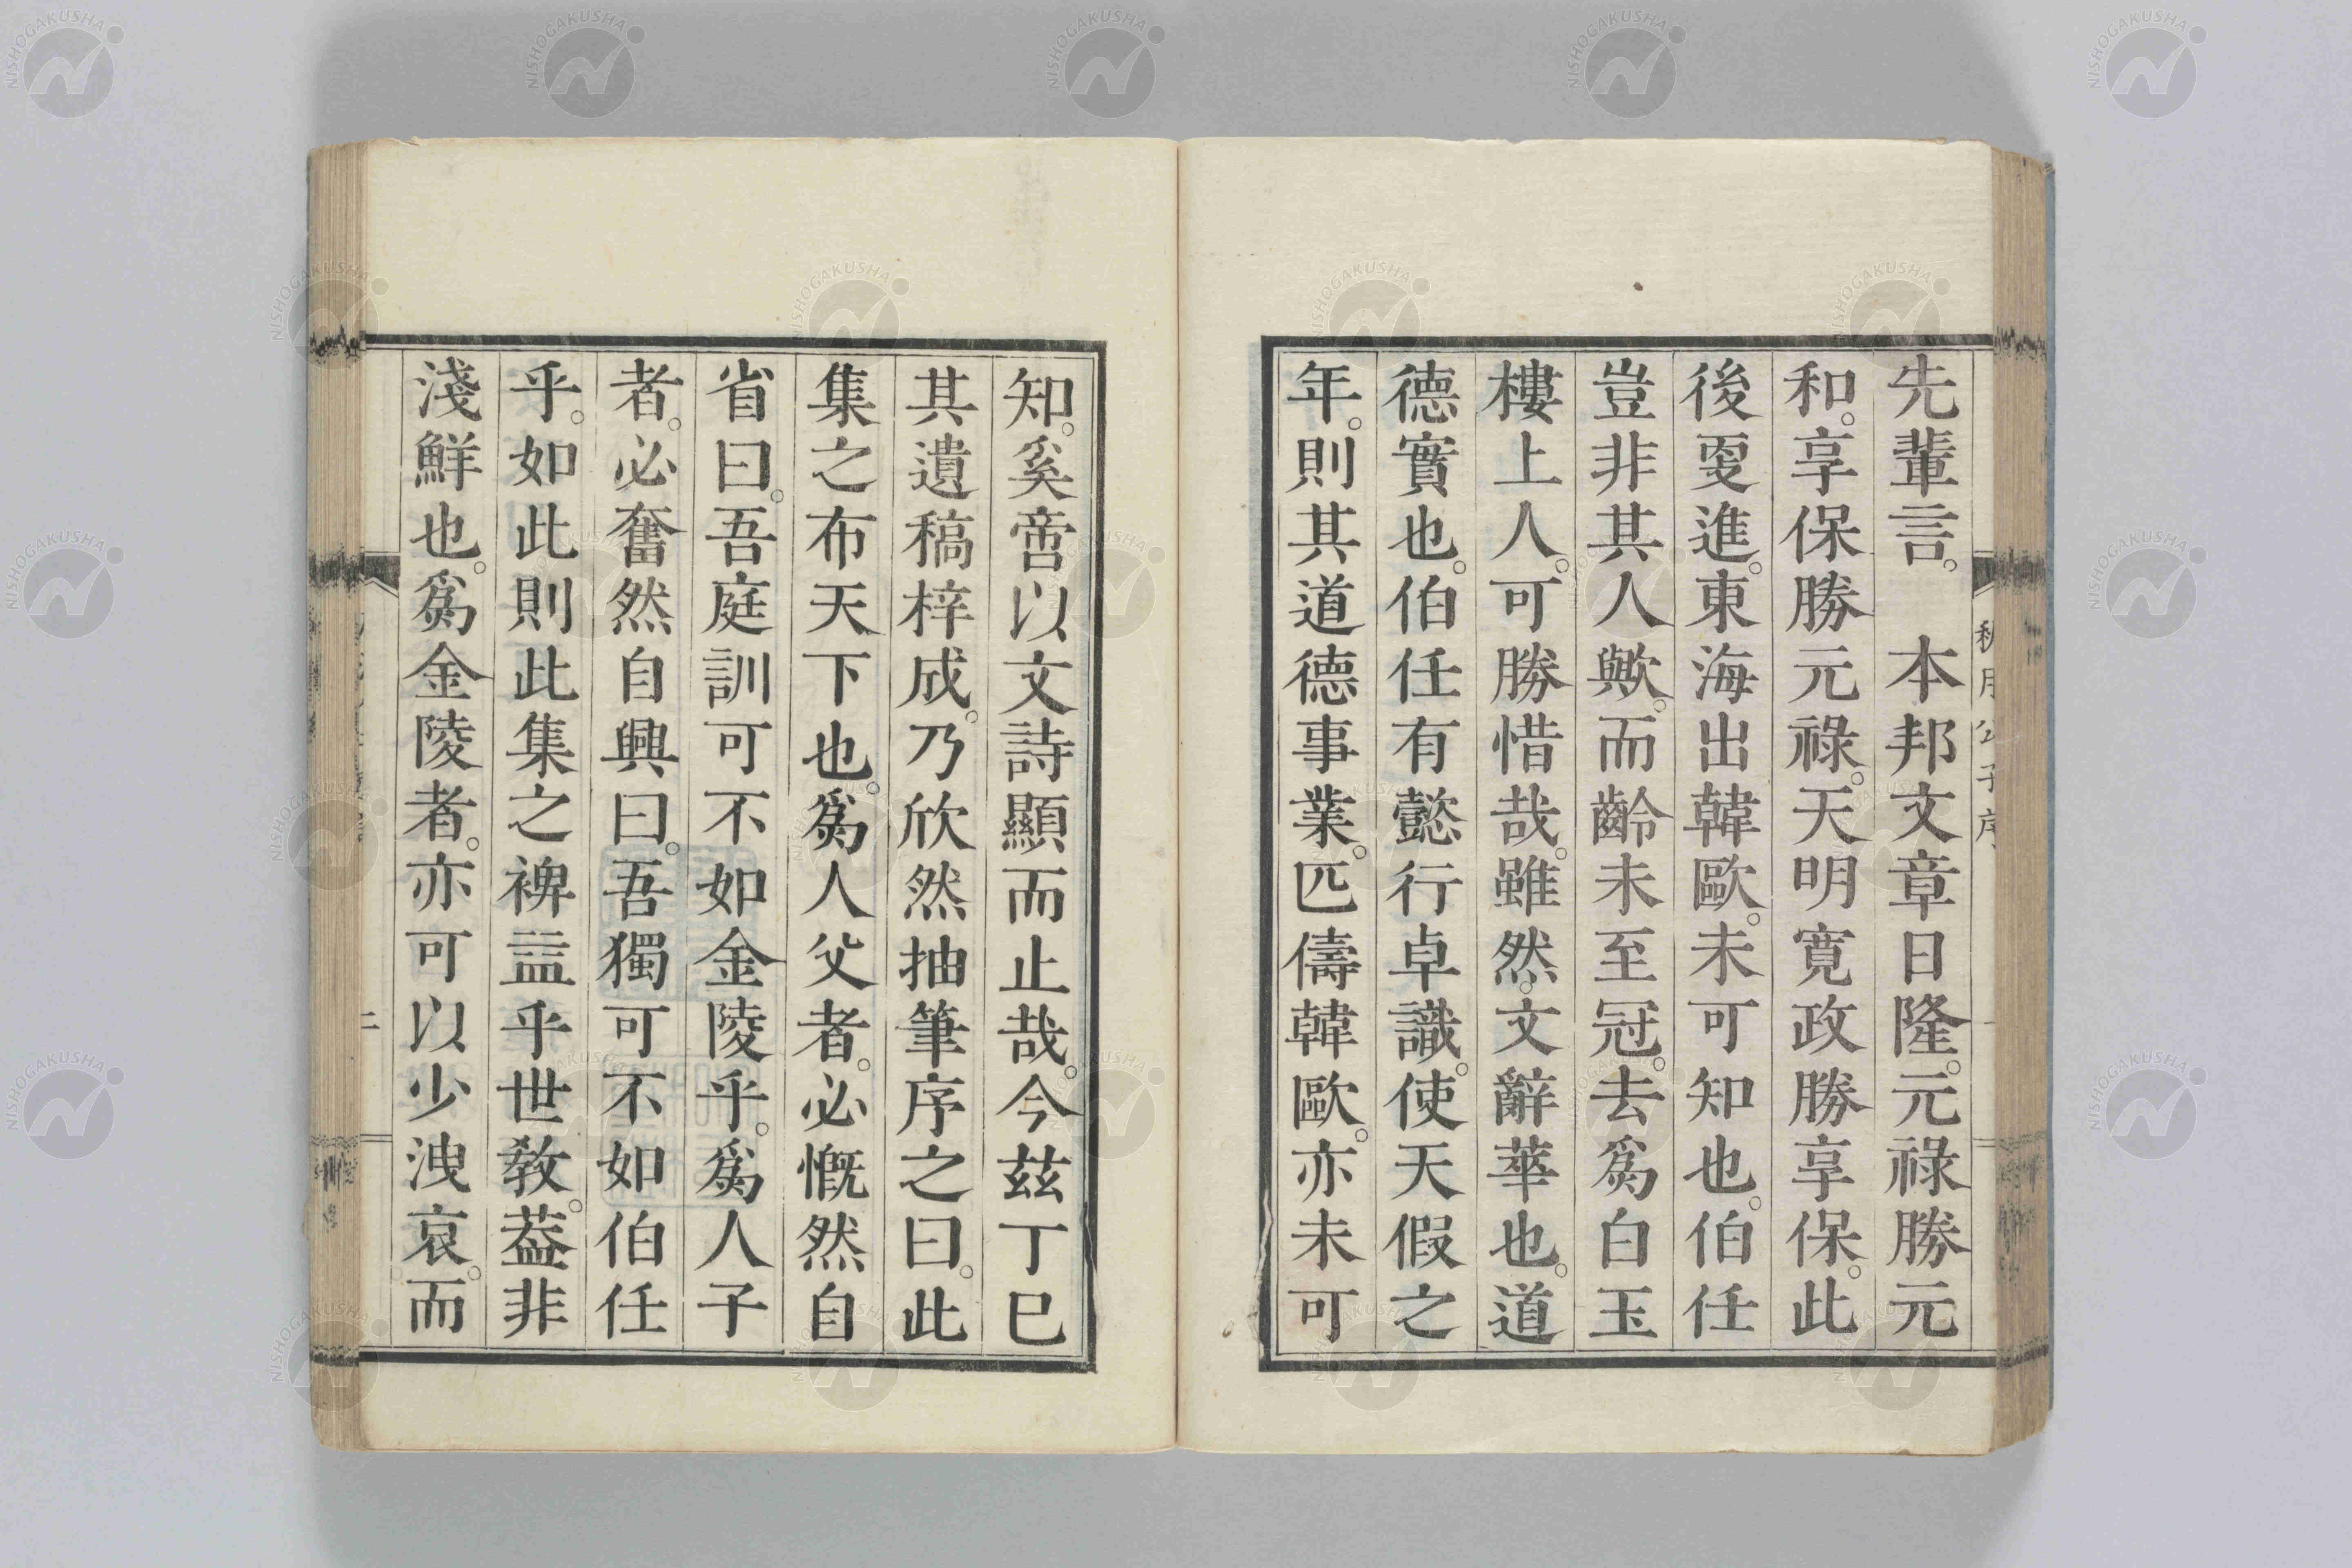 先輩言。　本邦文章日隆。元祿勝元
和。享保勝元祿。天明寛政勝享保。此
後叓進。東海出韓歐。未可知也。伯任
豈非其人歟。而齡未至冠。去爲白玉
樓上人。可勝惜哉。雖然。文辭華也。道
德實也。伯任有懿行卓識。使天假之
年。則其道德事業。匹儔韓歐。亦未可
知。奚啻以文詩顯而止哉。今玆丁巳
其遺稿梓成。乃欣然抽筆序之曰。此
集之布天下也。爲人父者。必慨然自
省曰。吾庭訓可不如金陵乎。爲人子
者。必奮然自興曰。吾獨可不如伯任
乎。如此則此集之裨益乎世教。葢非
淺鮮也。爲金陵者。亦可以少洩哀。而
二
NISHOGAKUSHA